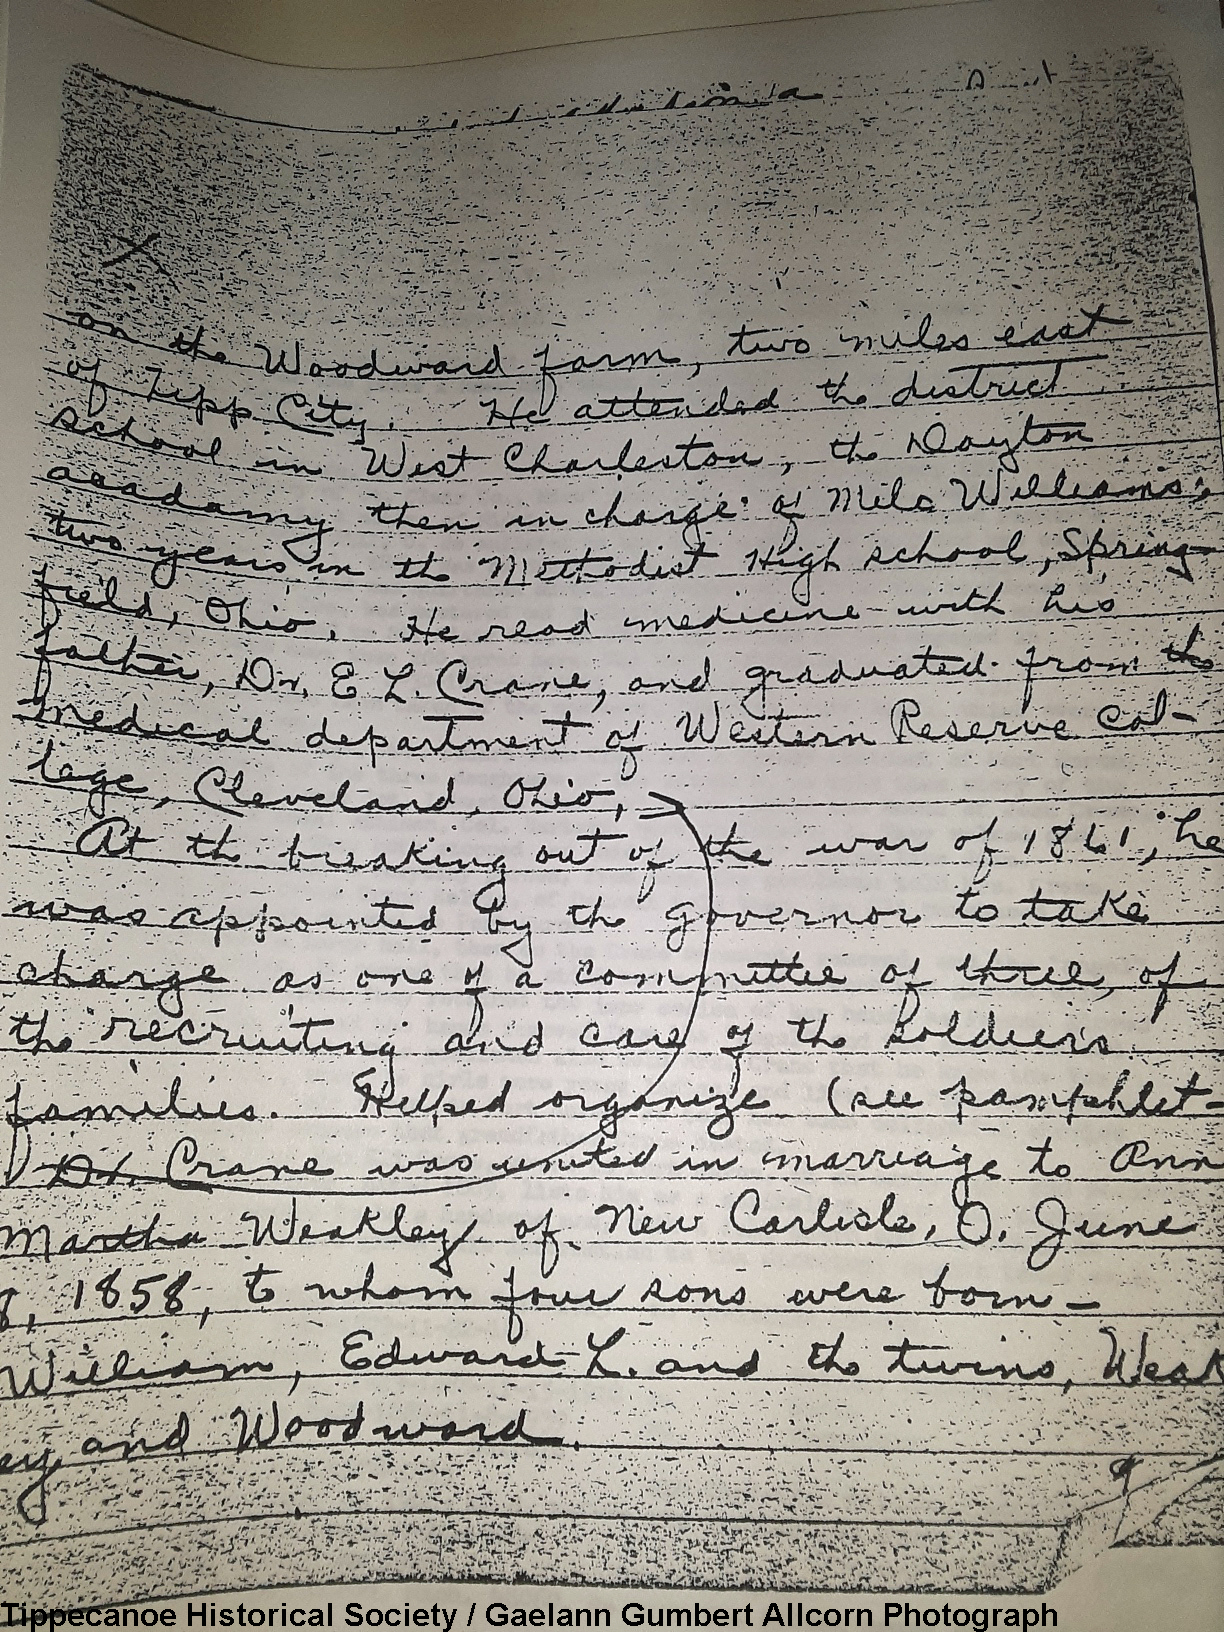 on the Woodward farm, two miles east
of Tipp City. He attended the district
school in West Charleston, the Dayton
acadamy then in charge of Milo Williams;
two years in the Methodist High school, Spring-
field, Ohio. He read medicine with his
father, Dr. E L. Crane, and graduated from the
medical department of Western Reserve Col-
lege, Cleveland, Ohio,
At the breaking out of the war of 1861, he
was appointed by the governor to take
charge as one of a committee of three, of
the recruiting and care of the soldiers
families. Helped organize (see pamphlet-
Dr. Crane was united in marriage to Ann
Martha Weakley of New Carlisle, O. June
8, 1858, to whom four sons were born-
William, Edward L. and the twins, Weak
ey and Woodward.
Tippecanoe Historical Society / Gaelann Gumbert Allcorn Photograph